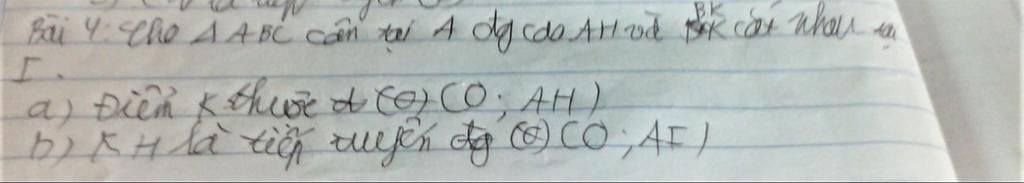 Bài 4: Cho Δ ABC cân tại A đg cao AH và BK cắt nhau tại
I.
a) Điểm K thuộc đ (O) (O; AH)
b) KH là tiếp tuyến đg (O) (O; AI)